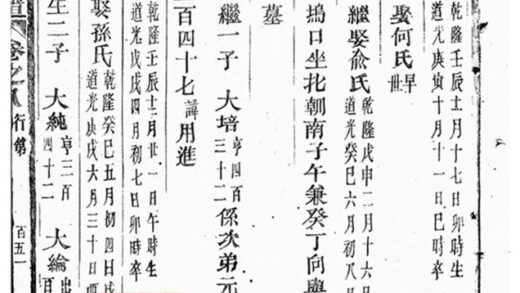 乾隆壬辰土月十七日卯時生
道光庚寅十月十一日巳時卒
娶何氏 早世
繼娶俞氏 乾隆戊申二月十六日
道光癸巳六月初八日
塢口坐北朝南子午兼癸丁向與
墓
繼一子 大培 亨四百三十二 係次弟元
百四十七 諱用進
乾隆壬辰十二月廿一日午時生
道光戊戌四月初七日卯時卒
娶孫氏 乾隆癸巳五月初四日
道光庚戌六月三十日
生二子 大純 亨三百四十二 大綸
卷之八 行第 百五一